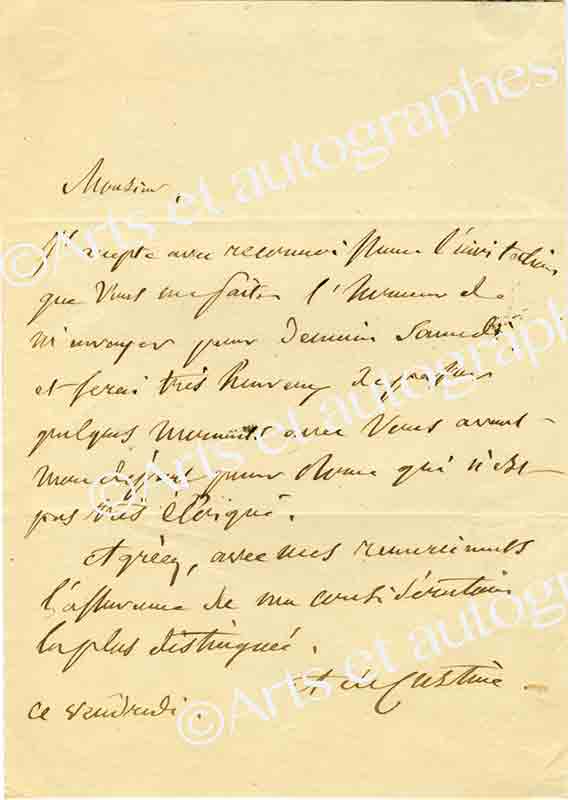 Monsieur,
J'accepte avec reconnoissance l'invitation
que Vous me faites l'honneur de
m'envoyer pour Demain Samedi
et serai très heureux de passer
quelques moments avec Vous avant
mon départ pour Rome qui n'est
pas très éloigné.
Agréez, avec mes remerciments
l'assurance de ma considération
la plus distinguée.
A de Custine
ce vendredi.
©Arts et autographes
©Arts et autographes
©Arts et autographes